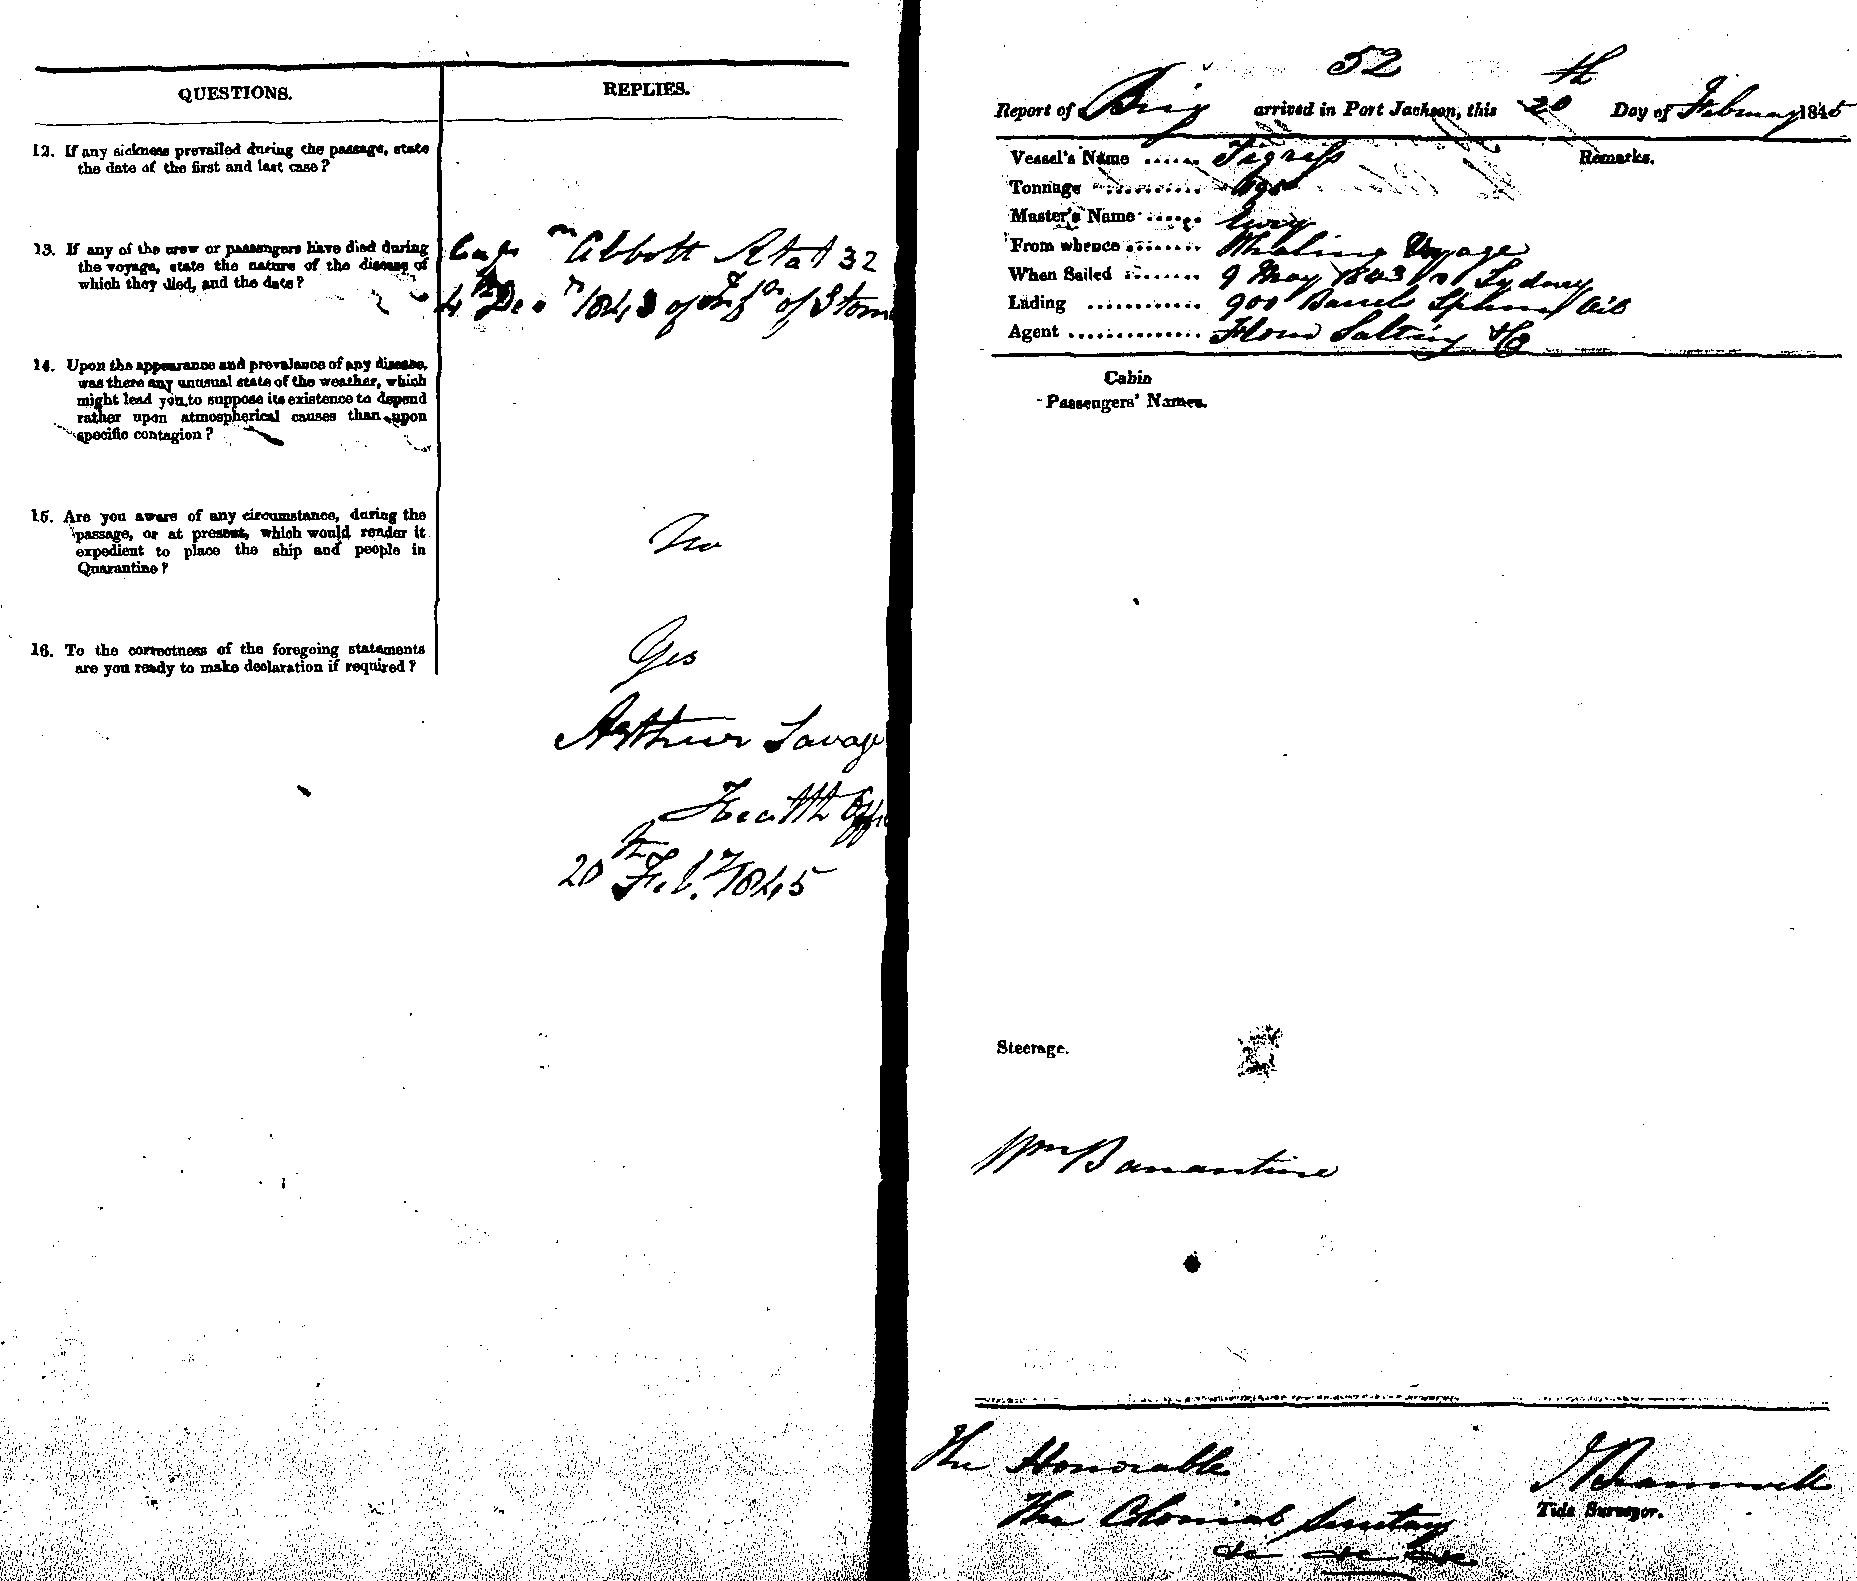 QUESTIONS.
REPLIES.
12. If any sickness prevailed during the passage, state
the date of the first and last case?
13. If any of the crew or passengers have died during
the voyage, state the nature of the disease of
which they died, and the date?
Capn Abbott Ætat 32
4th Decr 1843 of Infn of Stom
14. Upon the appearance and prevalance of any disease,
was there any unusual state of the weather, which
might lead you to suppose its existence to depend
rather upon atmospherical causes than upon
specific contagion?
15. Are you aware of any circumstance, during the
passage, or at present, which would render it
expedient to place the ship and people in
Quarantine?
No
16. To the correctness of the foregoing statements
are you ready to make declaration if required?
Yes
Arthur Savage
Health Offi
20th Feby 1845
52
Report of Brig arrived in Port Jackson, this 20th Day of February 1845
Vessel's Name ...... Tigress
Remarks.
Tonnage ............
Master's Name ......
From whence ........ Whaling Voyage
When Sailed ........ 9 May 1843 Sydney
Lading ............ 900 Barrels Sperm Oil
Agent .............. Flower Salting & Co
Cabin
Passengers' Names.
Steerage.
Wm Banantine
The Honorable
The Colonial Secretary
&c &c &c
J Bramwell
Tide Surveyor.